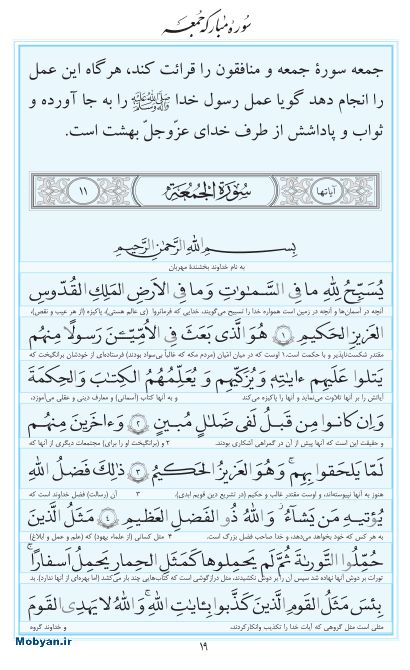 سورهٔ مبارکه جمعه
جمعه سورهٔ جمعه و منافقون را قرائت کند، هرگاه این عمل
را انجام دهد گویا عمل رسول خدا ﷺ را به جا آورده و
ثواب و پاداشش از طرف خدای عزّوجلّ بهشت است.
آیاتها سُورَةُ الْجُمُعَة ۱۱
بِسْمِ اللهِ الرَّحْمٰنِ الرَّحِيمِ
به نام خداوند بخشندهٔ مهربان
يُسَبِّحُ لِلّٰهِ ما فِي السَّمٰوٰتِ وَما فِي الْأَرْضِ الْمَلِكِ الْقُدّوسِ
آنچه در آسمان‌ها و آنچه در زمین است همواره خدا را تسبیح می‌گویند، خدایی که فرمانروا (ی عالم هستی)، پاکیزه (از هر عیب و نقص)،
الْعَزيزِ الْحَكيمِ ۱ هُوَ الَّذي بَعَثَ فِي الْأُمِّيّـۧنَ رَسولًا مِنهُم
مقتدر شکست‌ناپذیر و با حکمت است.۱ اوست که در میان امّیان (مردم مکه که غالباً بی‌سواد بودند) فرستاده‌ای از خودشان برانگیخت که
يَتلوا عَلَيهِم ءايٰتِهِ وَيُزَكّيهِم وَيُعَلِّمُهُمُ الْكِتٰبَ وَالْحِكمَةَ
آیاتش را بر آنها تلاوت می‌نماید و آنها را پاکیزه می‌کند و به آنها کتاب (آسمانی) و معارف دینی و عقلی می‌آموزد،
وَإِن كانوا مِن قَبلُ لَفي ضَلٰلٍ مُبينٍ ۲ وَءاخَرينَ مِنهُم
و حقیقت این است که آنها پیش از آن در گمراهی آشکاری بودند. ۲ و (برانگیخت او را برای) مجتمعات دیگری از آنها که
لَمّا يَلحَقوا بِهِم ۚ وَهُوَ الْعَزيزُ الْحَكيمُ ۳ ذٰلِكَ فَضلُ اللهِ
هنوز به آنها نپیوسته‌اند، و اوست مقتدر غالب و حکیم (در تشریع دین قویم ابدی). ۳ آن (رسالت) فضل خداوند است که
يُؤتيهِ مَن يَشاءُ ۚ وَاللهُ ذُو الْفَضلِ الْعَظيمِ ۴ مَثَلُ الَّذينَ
به هر کس که خود بخواهد می‌دهد، و خدا صاحب فضل بزرگ است. ۴ مثل کسانی (از علماء یهود) که (علم و عمل و ابلاغ)
حُمِّلُوا التَّورىٰةَ ثُمَّ لَم يَحمِلوها كَمَثَلِ الْحِمارِ يَحمِلُ أَسفارًا ۚ
تورات بر دوش آنها نهاده شد سپس آن را بر دوش نکشیدند، مثل درازگوشی است که کتاب‌هایی چند بار می‌کشد (اما بهره‌ای از آنها ندارد). بد
بِئسَ مَثَلُ الْقَومِ الَّذينَ كَذَّبوا بِـٔايٰتِ اللهِ ۚ وَاللهُ لا يَهدِي الْقَومَ
مثلی است مثل گروهی که آیات خدا را تکذیب و انکار کردند. و خداوند گروه
۱۹
Mobyan.ir